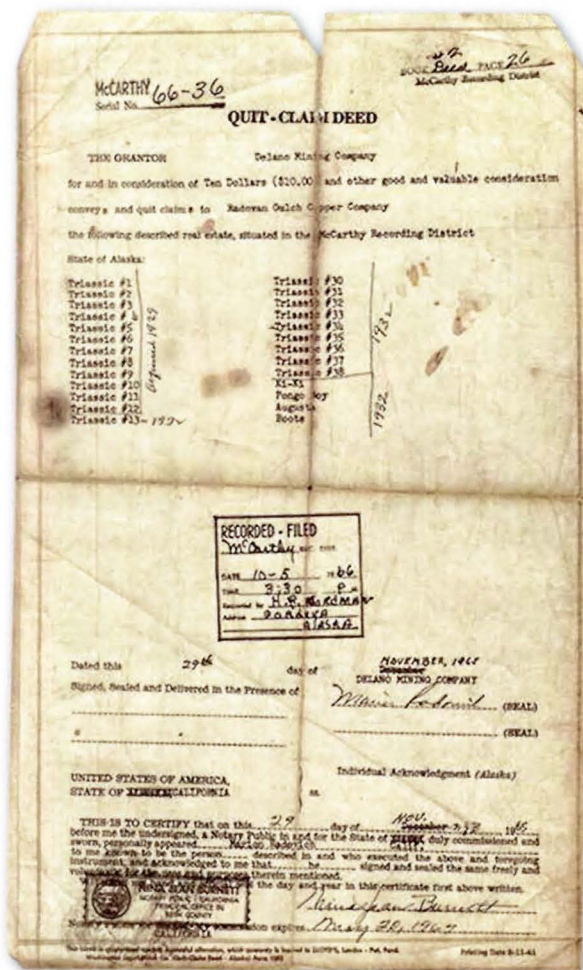 McCARTHY
Serial No. 66-36
BOOK 22 Deed PAGE 26
McCarthy Recording District
QUIT-CLAIM DEED
THE GRANTOR Delano Mining Company
for and in consideration of Ten Dollars ($10.00) and other good and valuable consideration
conveys and quit claims to Radovan Gulch Copper Company
the following described real estate, situated in the McCarthy Recording District
State of Alaska:
Triassic #1
Triassic #2
Triassic #3
Triassic #
Triassic #5
Triassic #6
Triassic #7
Triassic #8
Triassic #9
Triassic #10
Triassic #11
Triassic #12
Triassic #13 - 1932
1929
Triassic #30
Triassic #31
Triassic #32
Triassic #33
Triassic #34
Triassic #35
Triassic #36
Triassic #37
Triassic #38
1932
Ki-Ki
Pongo Boy
Augusta
Boots
1932
RECORDED - FILED
McCarthy REC. DIST.
DATE 10-5 1966
TIME 3:30 P M
Requested by H.B.
Address
ALASKA
Dated this 29th day of NOVEMBER, 1965
DELANO MINING COMPANY
Signed, Sealed and Delivered in the Presence of
(SEAL)
(SEAL)
Individual Acknowledgment (Alaska)
UNITED STATES OF AMERICA,
STATE OF CALIFORNIA ss.
THIS IS TO CERTIFY that on this 29 day of NOV. 1965
before me the undersigned, a Notary Public in and for the State of duly commissioned and
sworn, personally appeared Marion Radovich
to me known to be the person described in and who executed the above and foregoing
instrument, and acknowledged to me that he signed and sealed the same freely and
voluntarily for the uses and purposes therein mentioned.
the day and year in this certificate first above written.
NINA JEAN BURNETT
NOTARY PUBLIC CALIFORNIA
PRINCIPAL OFFICE IN
KERN COUNTY
Nina Jean Burnett
expires May 20, 1967
CALIFORNIA
Printing Date 8-11-61